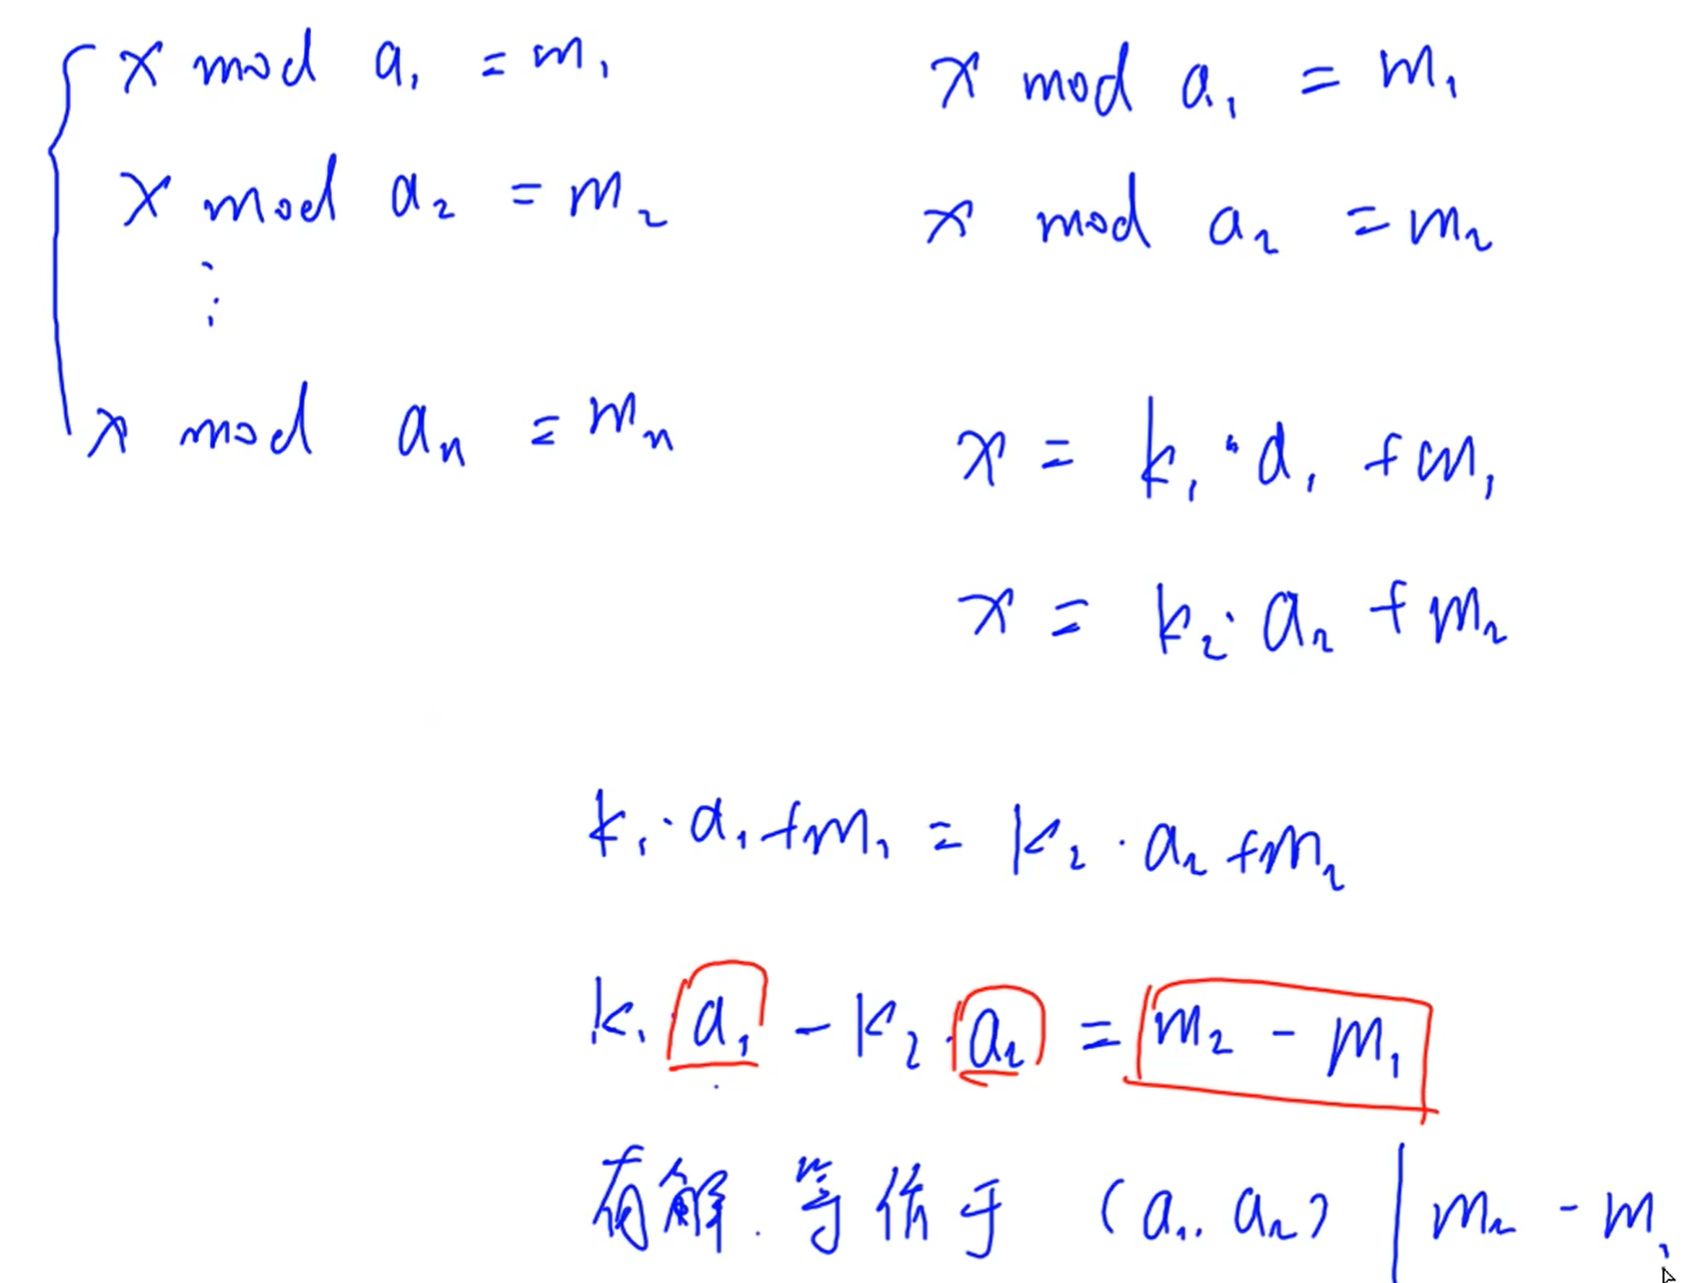 x mod a₁ = m₁
x mod a₂ = m₂
⋮
x mod aₙ = mₙ
x mod a₁ = m₁
x mod a₂ = m₂
x = k₁·a₁ + m₁
x = k₂·a₂ + m₂
k₁·a₁ + m₁ = k₂·a₂ + m₂
k₁·a₁ - k₂·a₂ = m₂ - m₁
有解.等价于 (a₁, a₂) | m₂ - m₁